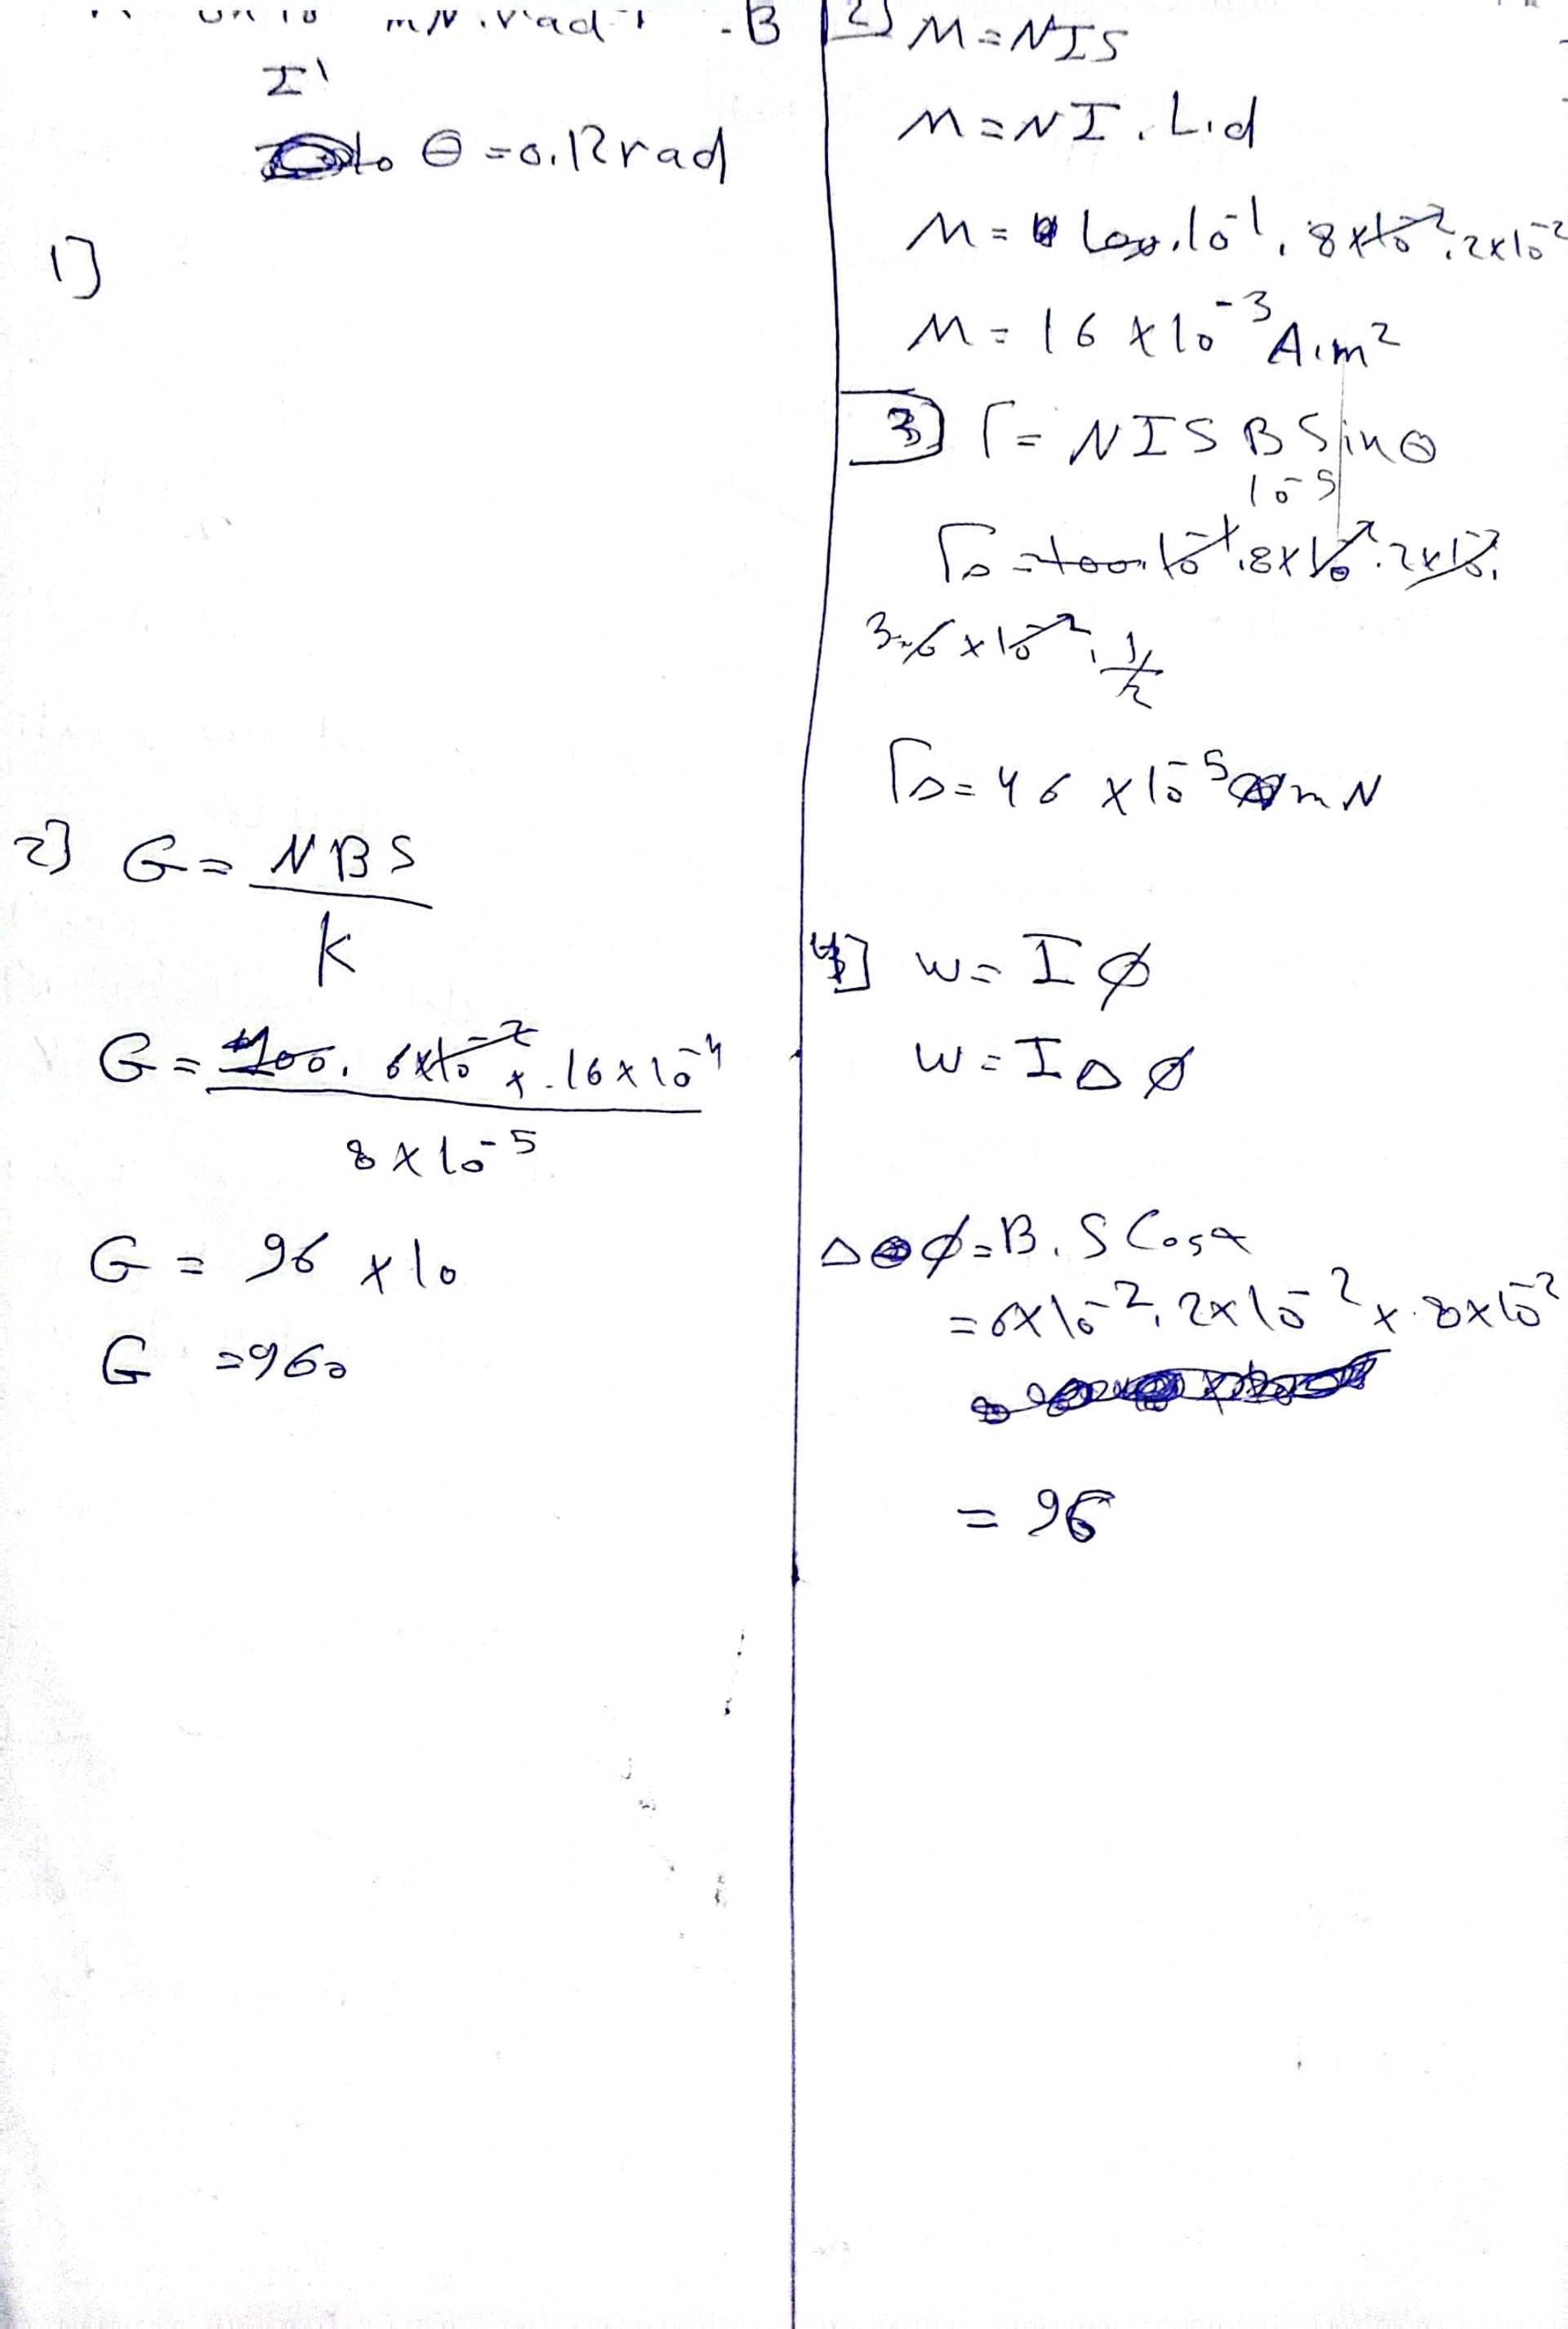 mN.rad-1 -B
I'
θ = 0.12 rad
1]
2] G = NBS
K
G = 100. 6x10-2 x. 16 x 10-4
8 x 10-5
G = 96 x 10
G = 960
2] M = NIS
M = NI. L.d
M = 100.10-1. 8x10-2. 2x10-2
M = 16 x 10-3 A.m2
3] Γ = NIS B Sin θ
10-5
Γ0 = 100.10-1.8x10-2.2x10-2.
x 10-2. 1/2
Γ0 = 46 x 10-5 mN
4] W = I Ø
W = I Δ Ø
Δ Ø = B. S Cos α
= 6x10-2. 2x10-2 x. 8x10-2
= 96